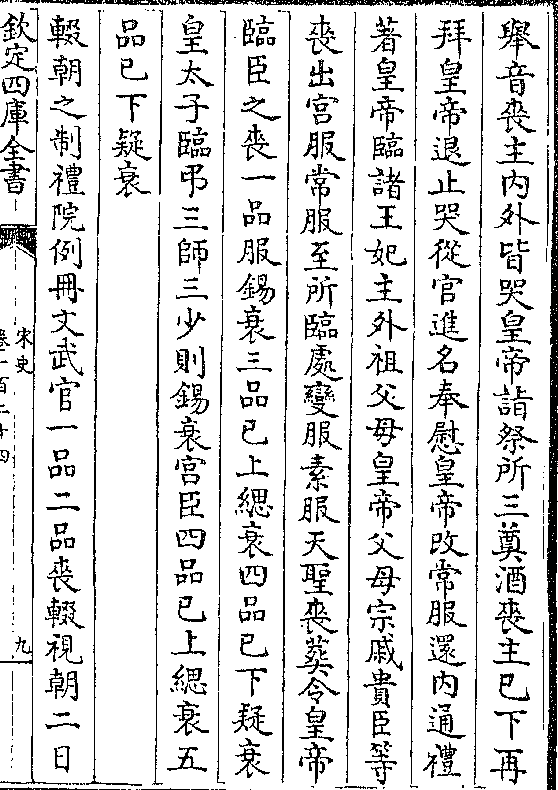 舉音喪主内外皆哭皇帝詣祭所三奠酒喪主已下再
拜皇帝退止哭從官進名奉慰皇帝改常服還内通禮
著皇帝臨諸王妃主外祖父母皇帝父母宗戚貴臣等
喪出宫服常服至所臨處變服素服天聖喪葬令皇帝
臨臣之喪一品服錫衰三品已上緦衰四品已下疑衰
皇太子臨弔三師三少則錫衰宫臣四品已上緦衰五
品已下疑衰
輟朝之制禮院例冊文武官一品二品喪輟視朝二日
欽定四庫全書
宋史
卷一百二十四
九